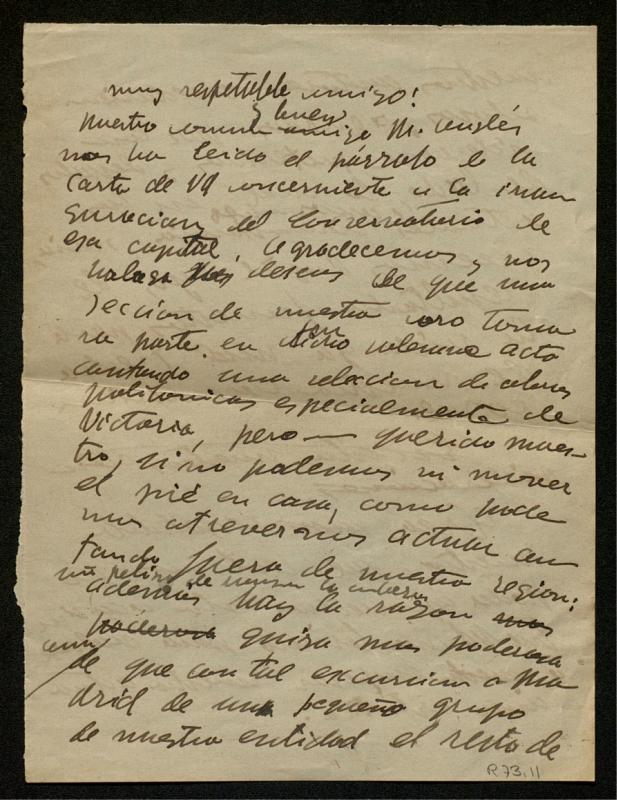 muy respetable amigo!
y buen
Nuestro comun amigo M. Anglés
nos ha leido el párrafo e la
Carta de Vd concerniente a la inau
guracion del Conservatorio de
esa capital, agradecemos y nos
halaga deseos de que una
seccion de nuestro coro toma
tan
ra parte en dicho solemne acto
cantando una seleccion de obras
polifonicas especialmente de
Victoria, pero — querido maes-
tro, si no podemos ni mover
el pié en casa, como pode
mos atrevernos actuar can
tando fuera de nuestra region:
sin peligro de
además hay la razon mas
poderosa quiza mas poderosa
aun
de que con tal excursion a Ma
drid de un pequeño grupo
de nuestra entidad el resto de
R 73.11